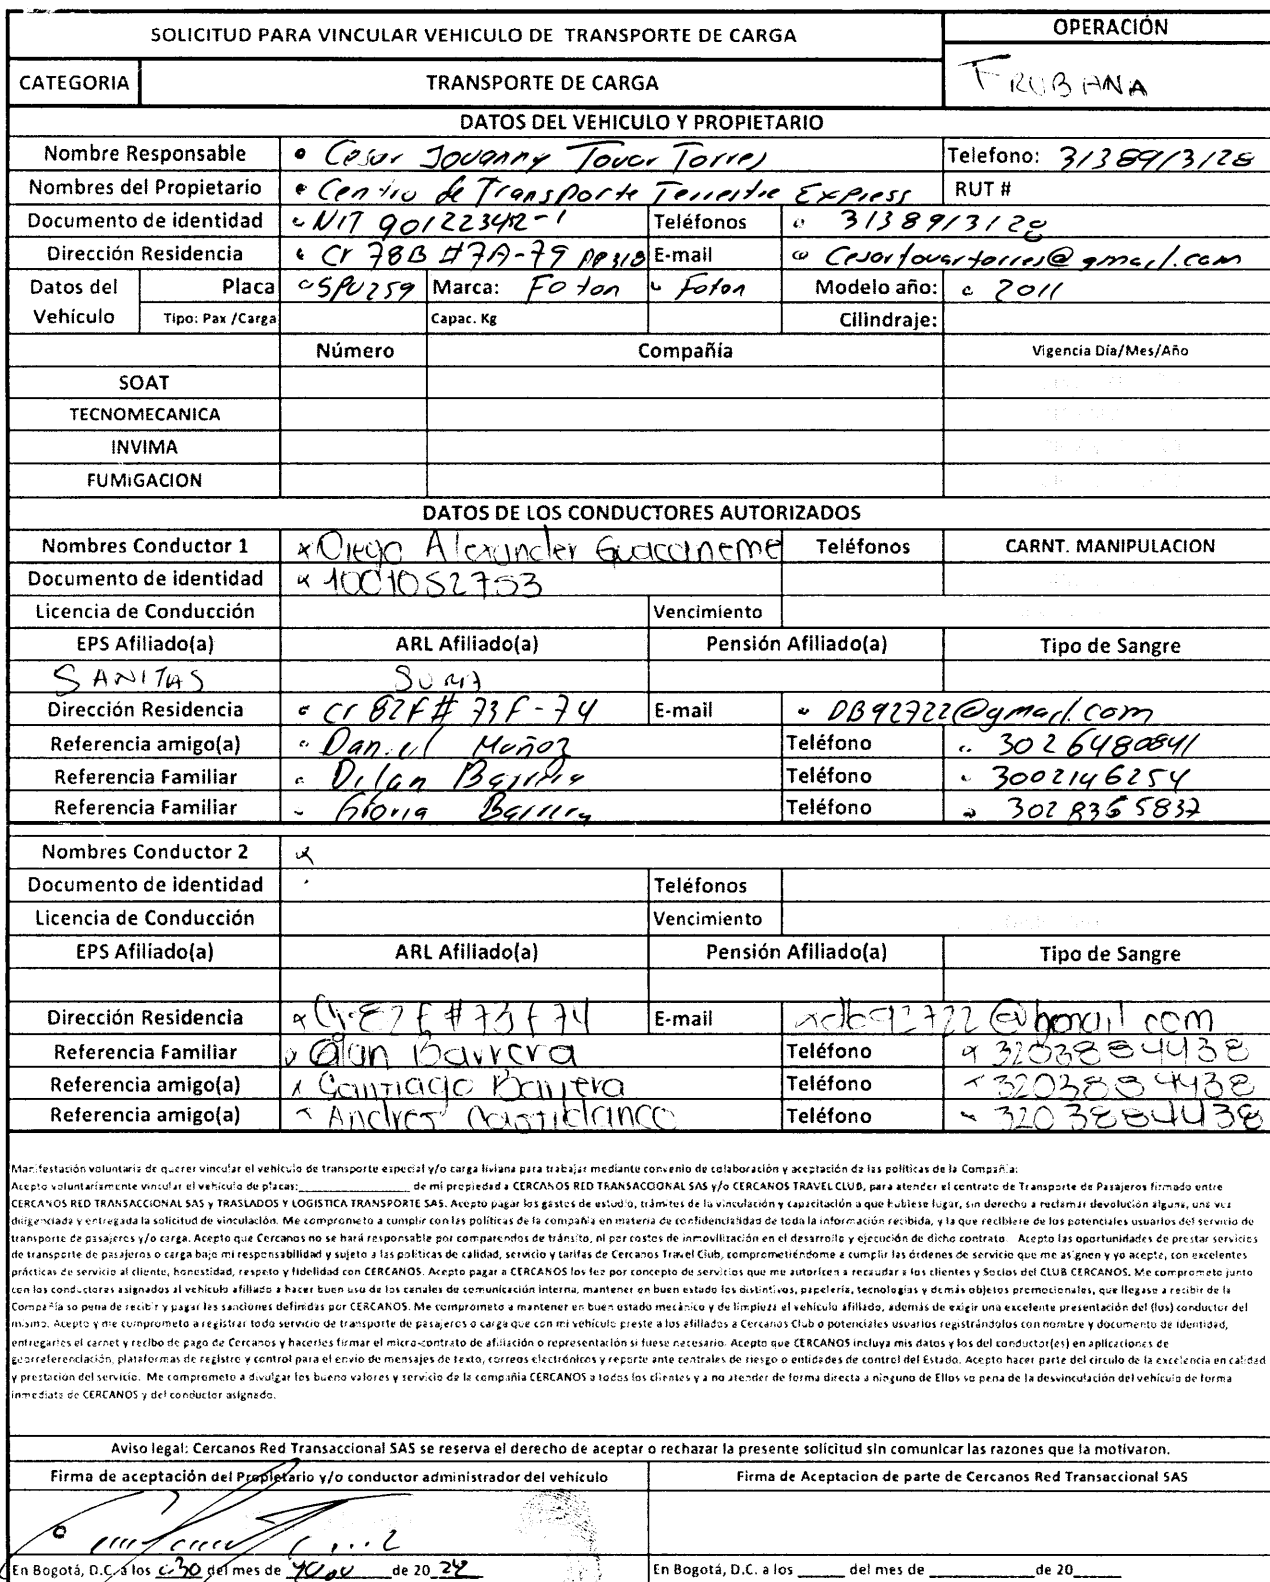 SOLICITUD PARA VINCULAR VEHICULO DE TRANSPORTE DE CARGA
OPERACIÓN
CATEGORIA TRANSPORTE DE CARGA
FRUBANA
DATOS DEL VEHICULO Y PROPIETARIO
Nombre Responsable Cesar Jovanny Tovar Torres Telefono: 3138913128
Nombres del Propietario Centro de Transporte Terrestre Express RUT #
Documento de identidad NIT 901223412-1 Teléfonos 3138913128
Dirección Residencia Cr 78B #7A-79 AP 318 E-mail Cesartovartorres@gmail.com
Datos del Vehículo Placa SPU259 Marca: Foton Foton Modelo año: 2011
Tipo: Pax /Carga Capac. Kg Cilindraje:
Número Compañía Vigencia Día/Mes/Año
SOAT
TECNOMECANICA
INVIMA
FUMiGACION
DATOS DE LOS CONDUCTORES AUTORIZADOS
Nombres Conductor 1 x Diego Alexander Guacaneme Teléfonos CARNT. MANIPULACION
Documento de identidad x 1001052753
Licencia de Conducción Vencimiento
EPS Afiliado(a) ARL Afiliado(a) Pensión Afiliado(a) Tipo de Sangre
SANITAS SURA
Dirección Residencia Cr 82F# 73F-74 E-mail DB92722@gmail.com
Referencia amigo(a) Daniel Muñoz Teléfono 3026480841
Referencia Familiar Dilan Barrera Teléfono 3002146254
Referencia Familiar Gloria Barrera Teléfono 3028355837
Nombres Conductor 2 x
Documento de identidad Teléfonos
Licencia de Conducción Vencimiento
EPS Afiliado(a) ARL Afiliado(a) Pensión Afiliado(a) Tipo de Sangre
Dirección Residencia x Cr 82F #73f 74 E-mail x db92722@hotmail.com
Referencia Familiar Dilan Barrera Teléfono x 3203884438
Referencia amigo(a) x Santiago Barrera Teléfono x 3203884438
Referencia amigo(a) x Andres Castiblanco Teléfono x 3203884438
Manifestación voluntaria de querer vincular el vehículo de transporte especial y/o carga liviana para trabajar mediante convenio de colaboración y aceptación de las políticas de la Compañía:
Acepto voluntariamente vincular el vehículo de placas:____________________ de mi propiedad a CERCANOS RED TRANSACCIONAL SAS y/o CERCANOS TRAVEL CLUB, para atender el contrato de Transporte de Pasajeros firmado entre
CERCANOS RED TRANSACCIONAL SAS y TRASLADOS Y LOGISTICA TRANSPORTE SAS. Acepto pagar los gastos de estudio, trámites de la vinculación y capacitación a que hubiese lugar, sin derecho a reclamar devolución alguna, una vez
diligenciada y entregada la solicitud de vinculación. Me comprometo a cumplir con las políticas de la compañía en materia de confidencialidad de toda la información recibida, y la que recibiere de los potenciales usuarios del servicio de
transporte de pasajeros y/o carga. Acepto que Cercanos no se hará responsable por comparendos de tránsito, ni por costos de inmovilización en el desarrollo y ejecución de dicho contrato. Acepto las oportunidades de prestar servicios
de transporte de pasajeros o carga bajo mi responsabilidad y sujeto a las políticas de calidad, servicio y tarifas de Cercanos Travel Club, comprometiéndome a cumplir las órdenes de servicio que me asignen y yo acepte, con excelentes
prácticas de servicio al cliente, honestidad, respeto y fidelidad con CERCANOS. Acepto pagar a CERCANOS los fee por concepto de servicios que me autoricen a recaudar a los clientes y Socios del CLUB CERCANOS. Me comprometo junto
con los conductores asignados al vehículo afiliado a hacer buen uso de los canales de comunicación interna, mantener en buen estado los distintivos, papelería, tecnologías y demás objetos promocionales, que llegase a recibir de la
Compañía so pena de recibir y pagar las sanciones definidas por CERCANOS. Me comprometo a mantener en buen estado mecánico y de limpieza el vehículo afiliado, además de exigir una excelente presentación del (los) conductor del
mismo. Acepto y me comprometo a registrar todo servicio de transporte de pasajeros o carga que con mi vehículo preste a los afiliados a Cercanos Club o potenciales usuarios registrándolos con nombre y documento de identidad,
entregarles el carnet y recibo de pago de Cercanos y hacerles firmar el micro-contrato de afiliación o representación si fuese necesario. Acepto que CERCANOS incluya mis datos y los del conductor(es) en aplicaciones de
georreferenciación, plataformas de registro y control para el envio de mensajes de texto, correos electrónicos y reporte ante centrales de riesgo o entidades de control del Estado. Acepto hacer parte del circulo de la excelencia en calidad
y prestación del servicio. Me comprometo a divulgar los bueno valores y servicio de la compañia CERCANOS a todos los clientes y a no atender de forma directa a ninguno de Ellos so pena de la desvinculación del vehículo de forma
inmediata de CERCANOS y del conductor asignado.
Aviso legal: Cercanos Red Transaccional SAS se reserva el derecho de aceptar o rechazar la presente solicitud sin comunicar las razones que la motivaron.
Firma de aceptación del Propietario y/o conductor administrador del vehículo Firma de Aceptacion de parte de Cercanos Red Transaccional SAS
En Bogotá, D.C. a los 30 del mes de de 20 24 En Bogotá, D.C. a los _____ del mes de ____________ de 20_____